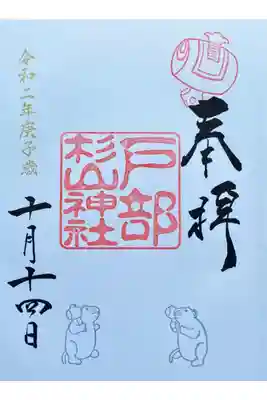 奉拝
戸部
杉山神社
十月十四日
令和二年庚子歳